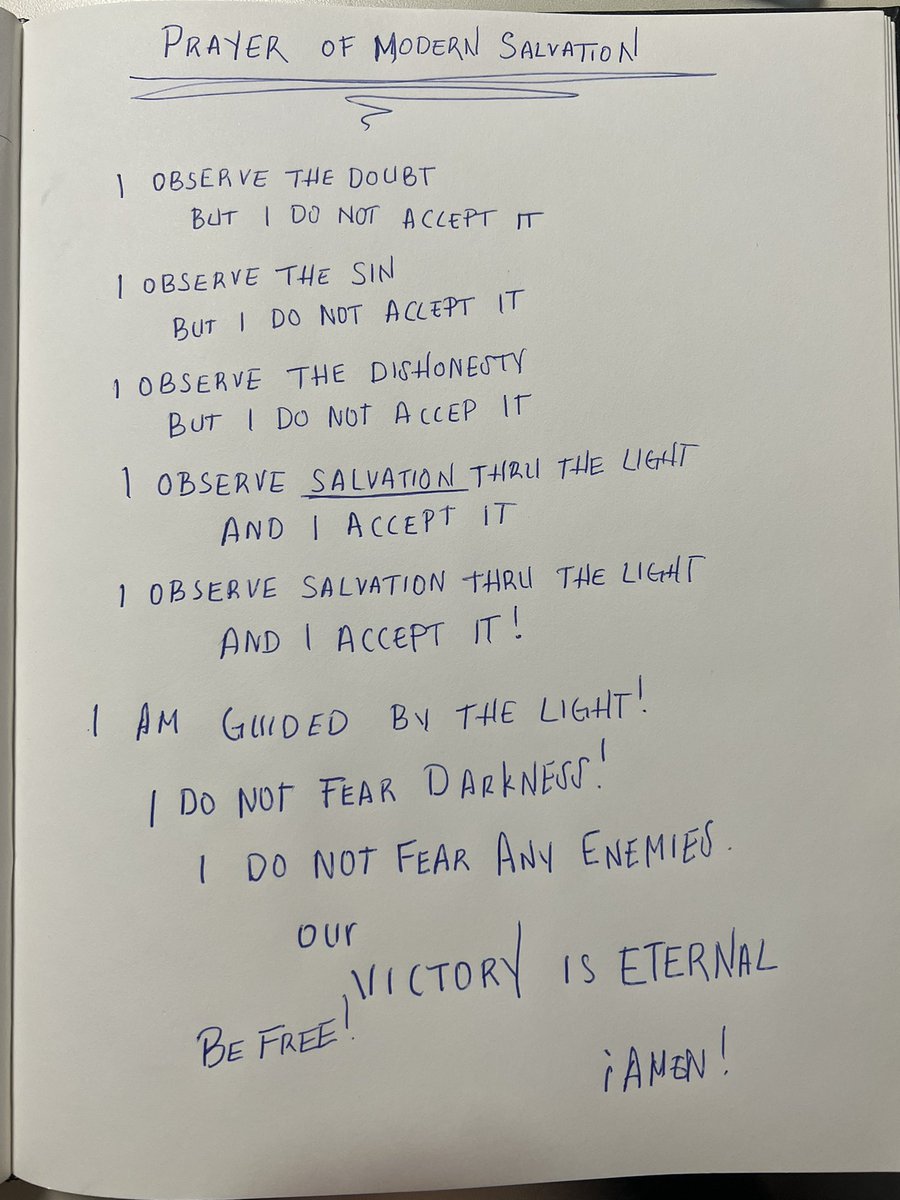 PRAYER OF MODERN SALVATION
I OBSERVE THE DOUBT
BUT I DO NOT ACCEPT IT
I OBSERVE THE SIN
BUT I DO NOT ACCEPT IT
I OBSERVE THE DISHONESTY
BUT I DO NOT ACCEP IT
I OBSERVE SALVATION THRU THE LIGHT
AND I ACCEPT IT
I OBSERVE SALVATION THRU THE LIGHT
AND I ACCEPT IT!
I AM GUIDED BY THE LIGHT!
I DO NOT FEAR DARKNESS!
I DO NOT FEAR ANY ENEMIES.
OUR
VICTORY IS ETERNAL
BE FREE!
¡AMEN!